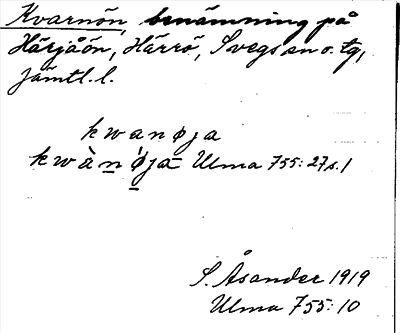 Kvarnön, benämning på
Härjåön, Härrö, Svegs sn o. tg,
Jämtl. l.
kwanøja
kwànǿja Ulma 755:27 s. 1
S. Åsander 1919
Ulma 755:10